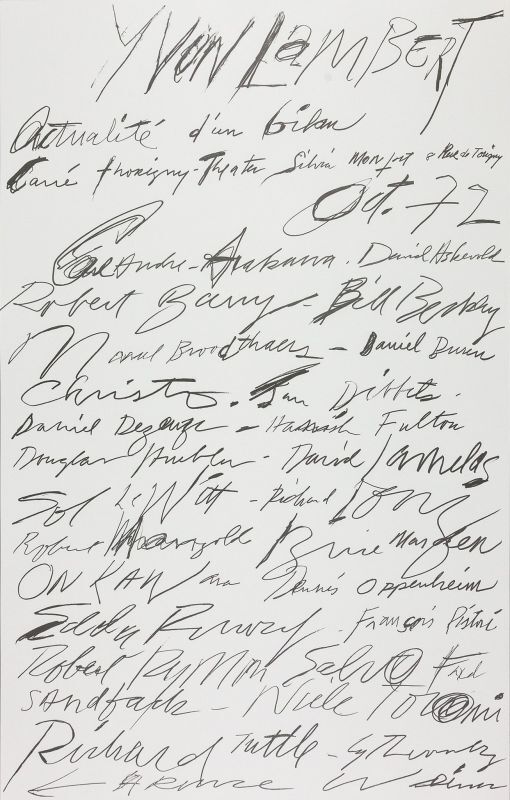 YVON LAMBERT
Actualité d'un bilan
Carré Thorigny - Theater Silvia Monfort 8 Rue de Torigny
Oct. 72
Carl Andre - Arakawa. David Askevold
Robert Barry - Bill Beckley
Marcel Broodthaers - Daniel Buren
Christo. Jan Dibbets.
Daniel Dezeuze - Hamish Fulton
Douglas Huebler - David Lamelas
Sol LeWitt - Richard Long
Robert Mangold Brice Marden
ON KAWara Dennis Oppenheim
François Pistre
Robert Ryman Salvo Fred
SANDback - Niele Toroni
Richard Tuttle - Cy Twombly
← Lawrence Weiner